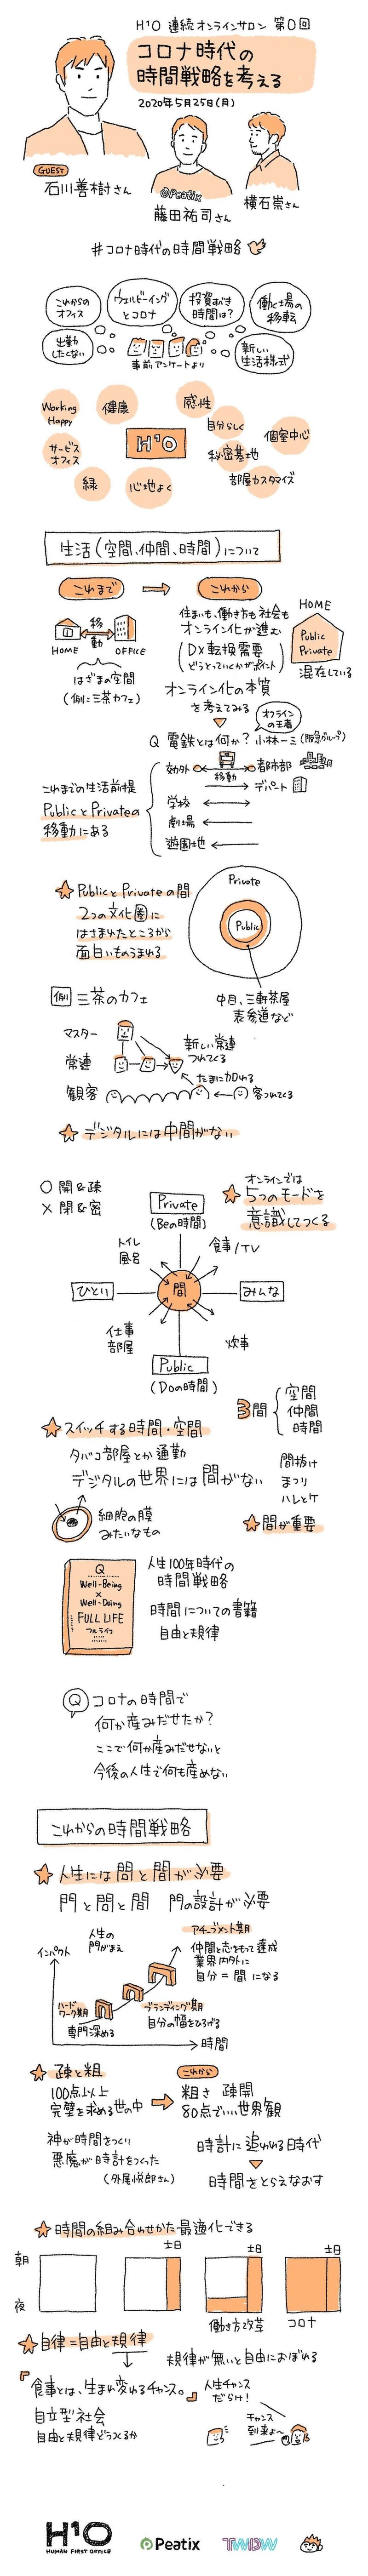 H¹O 連続オンラインサロン 第0回
コロナ時代の
時間戦略を考える
2020年5月25日(月)
GUEST
石川善樹さん
@Peatix
藤田祐司さん
横石崇さん
#コロナ時代の時間戦略
これからの
オフィス
ウェルビーイング
とコロナ
投資すべき
時間は?
働く場の
移転
出勤
したくない
新しい
生活様式
事前アンケートより
Working
Happy
健康
感性
自分らしく
個室中心
サービス
オフィス
H¹O
秘密基地
緑
心地よく
部屋カスタマイズ
生活(空間、仲間、時間)について
これまで
これから
HOME
移動
OFFICE
はざまの空間
(例:三茶カフェ)
住まいも、働き方も社会も
オンライン化が進む
(DX転換需要
どうとっていくかがポイント)
HOME
Public
Private
混在している
オンライン化の本質
を考えてみる
オフライン
の王者
Q 電鉄とは何か?
小林一三(阪急グループ)
これまでの生活前提
PublicとPrivateの
移動にある
郊外
移動
都市部
デパート
学校
劇場
遊園地
PublicとPrivateの間
2つの文化圏に
はさまれたところから
面白いものうまれる
Private
Public
中目、三軒茶屋
表参道など
例 三茶のカフェ
マスター
常連
新しい常連
つれてくる
たまに加われる
観客
客つれてくる
デジタルには中間がない
○ 開&疎
× 閉&密
Private
(Beの時間)
オンラインでは
5つのモードを
意識してつくる
トイレ
風呂
食事/TV
ひとり
間
みんな
仕事
部屋
炊事
Public
(Doの時間)
3間
空間
仲間
時間
スイッチする時間・空間
タバコ部屋とか通勤
デジタルの世界には間がない
間抜け
まつり
ハレとケ
細胞の膜
みたいなもの
間が重要
Q
Well-Being
×
Well-Doing
FULL LIFE
フルライフ
人生100年時代の
時間戦略
時間についての書籍
自由と規律
Q コロナの時間で
何か産みだせたか?
ここで何か産みだせないと
今後の人生で何も産めない
これからの時間戦略
人生には問と間が必要
門と問と間 門の設計が必要
インパクト
人生の
門がまえ
アチーブメント期
仲間と志をもって達成
業界内外に
自分=間 になる
ハード
ワーク期
専門深める
ブランディング期
自分の幅をひろげる
時間
疎と粗
100点以上
完璧を求める世の中
これから
粗さ 疎開
80点でいい世界観
神が時間をつくり
悪魔が時計をつくった
(外尾悦郎さん)
時計に追われる時代
時間をとらえなおす
時間の組み合わせかた最適化できる
朝
夜
土日
土日
土日
働き方改革
コロナ
自律=自由と規律
規律が無いと自由におぼれる
『食事とは、生まれ変わるチャンス。』
人生チャンス
だらけ!
自立型社会
自由と規律どうつくるか
チャンス
到来よ〜
H¹O
HUMAN FIRST OFFICE
Peatix
TWDW